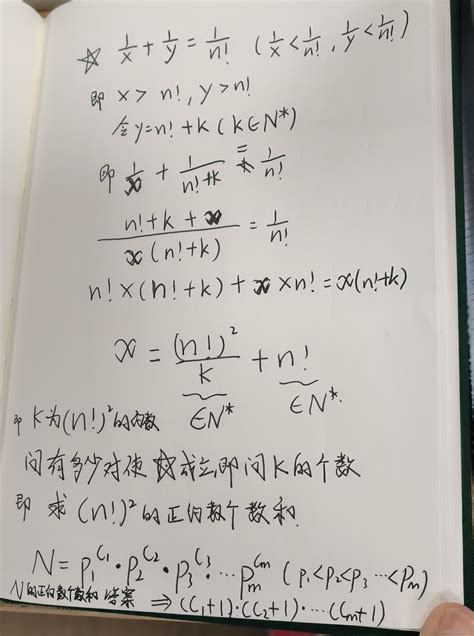 ☆ 1/x + 1/y = 1/n! (1/x < 1/n!, 1/y < 1/n!)
即 x > n!, y > n!
令 y = n! + k (k∈N*)
即 1/x + 1/(n!+k) = 1/n!
(n!+k+x)/(x(n!+k)) = 1/n!
n! × (n!+k) + x × n! = x(n!+k)
x = (n!)²/k + n!
∈N* ∈N*.
即 k为(n!)²的约数
问有多少对使☆成立,即问k的个数
即 求 (n!)² 的正约数个数和.
N = p₁^C₁ · p₂^C₂ · p₃^C₃ · … pₘ^Cₘ (p₁<p₂<p₃…<pₘ)
N的正约数个数和 答案 ⇒ (C₁+1)·(C₂+1)·…(Cₘ+1)